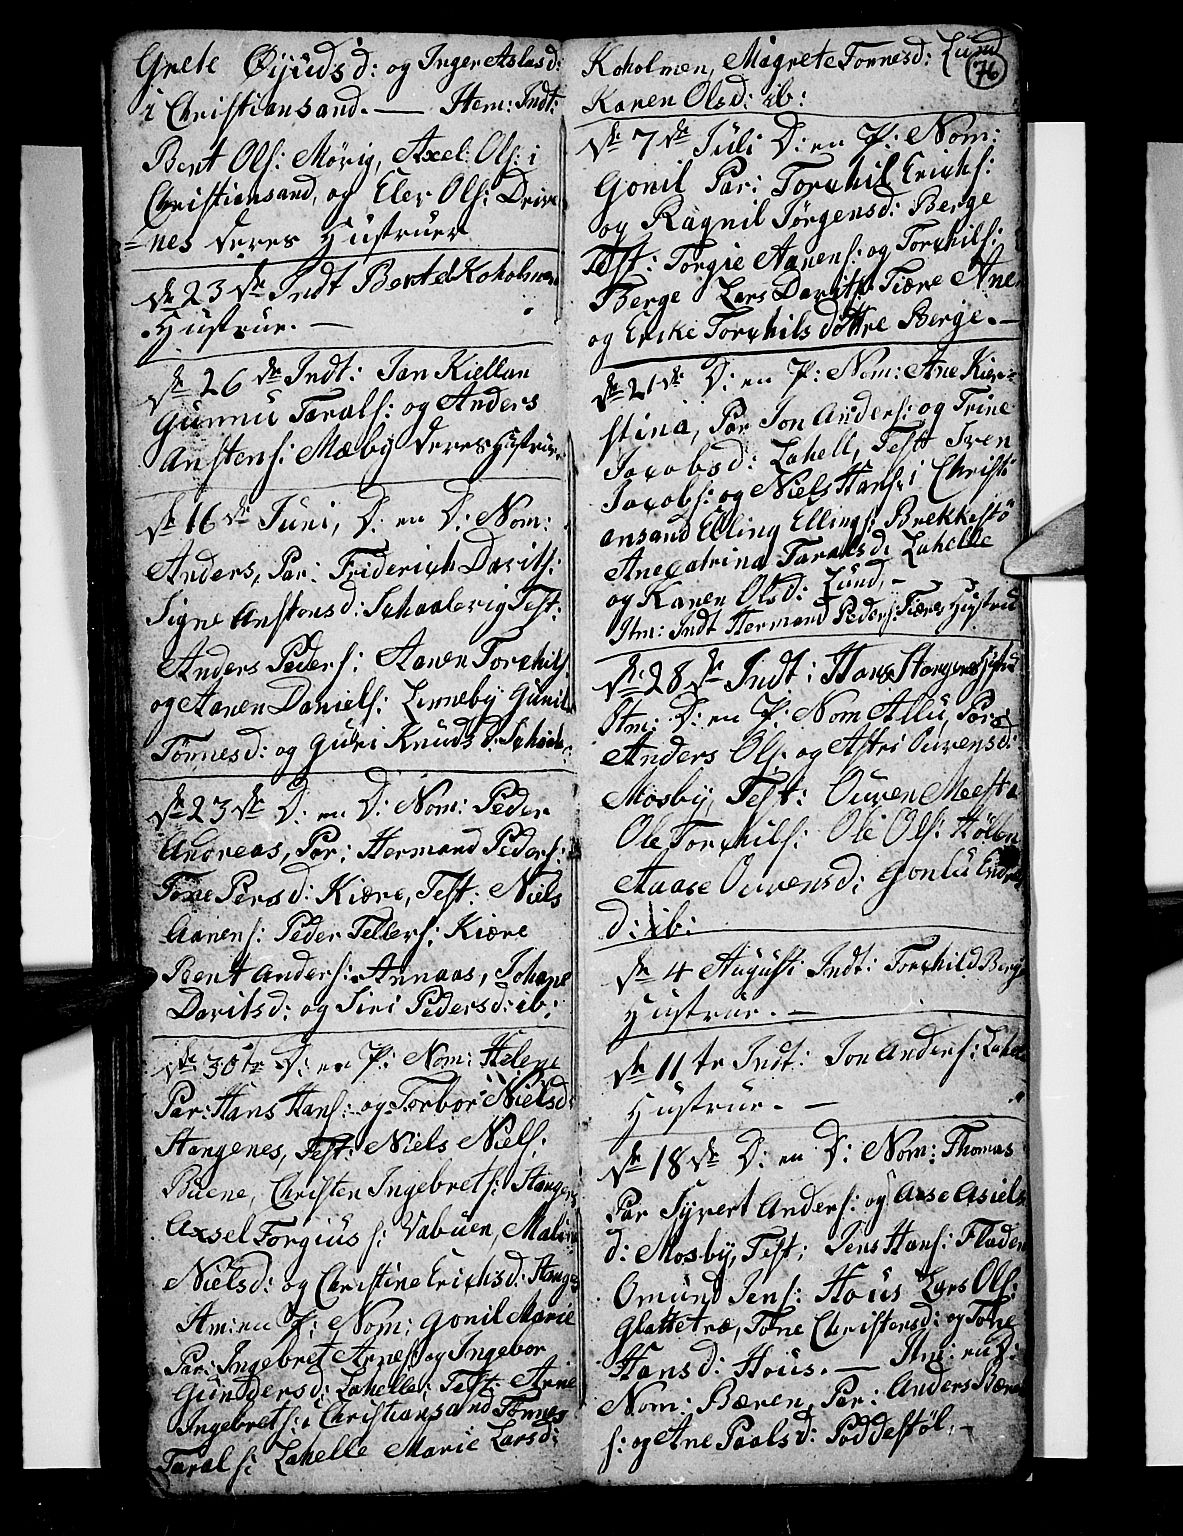 Grete Øyuds d: og Inger Aslas d:
i Christiansand. — Item: Indt:
Bent Ols: Mørig, Axel Ols: i
Christiansand, og Eler Ols: Drive
=nes deres Hustruer
dn 23 de Indt Bertel Koholmen
Hustrue. —
dn 26 de Indt: Jan Kiellan
Gunnu Tarals: og Anders
Anstens: Mæby deres Hustruer
dn 16 de Juni, D: en D: Nom:
Anders, Par: Friderich Davits:
Signe Anstens d: Schaalevig Test:
Anders Peders: Aanen Torchils
og Aanen Daniels: Linneby Gunil
Tønnes d: og Guri Knuds d: Schaale:
dn 23 de D: en D: Nom: Peder
Andreas, Par: Hermand Peders:
Tone Pers d: Kiære, Test: Niels
Aanens: Peder Tellefs: Kiære
Bent Anders: Aanaas, Johane
Davits d: og Siri Peders d: ib:
dn 30 te D: en P: Nom: Helene
Par: Hans Hans: og Torbor Niels d:
Hangenes, Test: Niels Niels:
Buene, Christen Ingebrets: Hangenes
Axsel Torgius s: Vabuen, Malene
Niels d: og Christine Erichs d: Hangs
Itm: en P: Nom: Gonil Marie
Par: Ingebret Arnes: og Ingebor
Gunders d: Lahelle: Test: Arne
Ingebrets: i Christiansand Tønnes
Taral s: Lahelle Marie Lars d:
Koholmen, Magrete Tønnes d: Lund
76
Karen Ols d: ib:
dn 7 de Juli D: en P: Nom:
Gonil Par: Torchil Erichs:
og Ragnil Jørgens d: Berge
Test: Torgie Aanens: og Torchils:
Berge Lars Davits: Tiære Ane
og Ericke Torchils døttre Berge. —
dn 21 de D: en P: Nom: Ane Kier=
stina, Par Jon Anders: og Trine
Jacobs d: Lahell, Test Iven
Jacobs: og Niels Hans: i Christi
ansand Elling Ellings: Brekkestø
Anecatrina Tarals d: Lahelle
og Karen Ols d: Lund. —
Itm: Indt Hermand Peders: Tiæres Hustrue
dn 28 de Indt: Hans Hangenes Hustrue
Itm: D: en P: Nom Allu, Par:
Anders Ols og Astri Ouvens d:
Mosby, Test: Ouven Meesta
Ole Torchils: Ole Ols: Høllen
Aaase Ouvens d: Gonlu Enders
d: ib:
dn 4 Augusti Indt: Torchild Berge
Hustrue. —
dn 11 te Indt: Jon Anders: Lahelle
Hustrue. —
dn 18 de D: en D: Nom: Thomas
Par Syvert Anders: og Aase Asiels
d: Mosby, Test: Jens Hans: Fladen
Omund Jens: Hous Lars Ols:
Glattetræ, Tone Christens d: og Tone
Hans d: Hous. — Itm: en D:
Nom: Bæren, Par: Anders Bæren
s: og Ane Paals d: Poddestøl. —